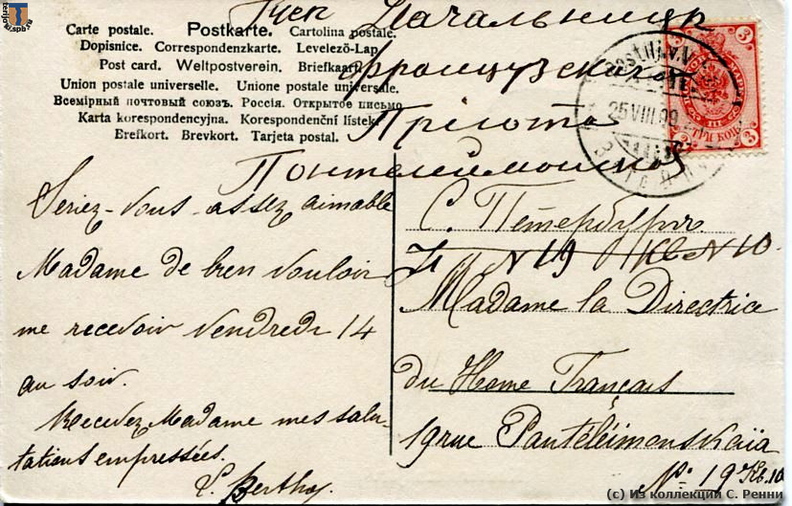 terijoki.spb.ru
Carte postale. Postkarte. Cartolina postale.
Dopisnice. Correspondenzkarte. Levelező-Lap.
Post card. Weltpostverein. Briefkaart.
Union postale universelle. Unione postale universale.
Всемірный почтовый союзъ. Россія. Открытое письмо
Karta korespondencyjna. Korespondenční lístek.
Brefkort. Brevkort. Tarjeta postal.
Начальницѣ
Французскаго
Пріюта
Пантелеймонская
3 3
ТРИ КОП.
25 VIII 99
Seriez-vous assez aimable
Madame de bien vouloir
me recevoir vendredi 14
au soir.
Recevez Madame mes salu-
tations empressées.
Berthoz
С. Петербургъ
N 19 Кв N 10.
Madame la Directrice
du Home Français
19 rue Pantéleimonskaïa
No 19 Кв. 10
(c) Из коллекции С. Ренни